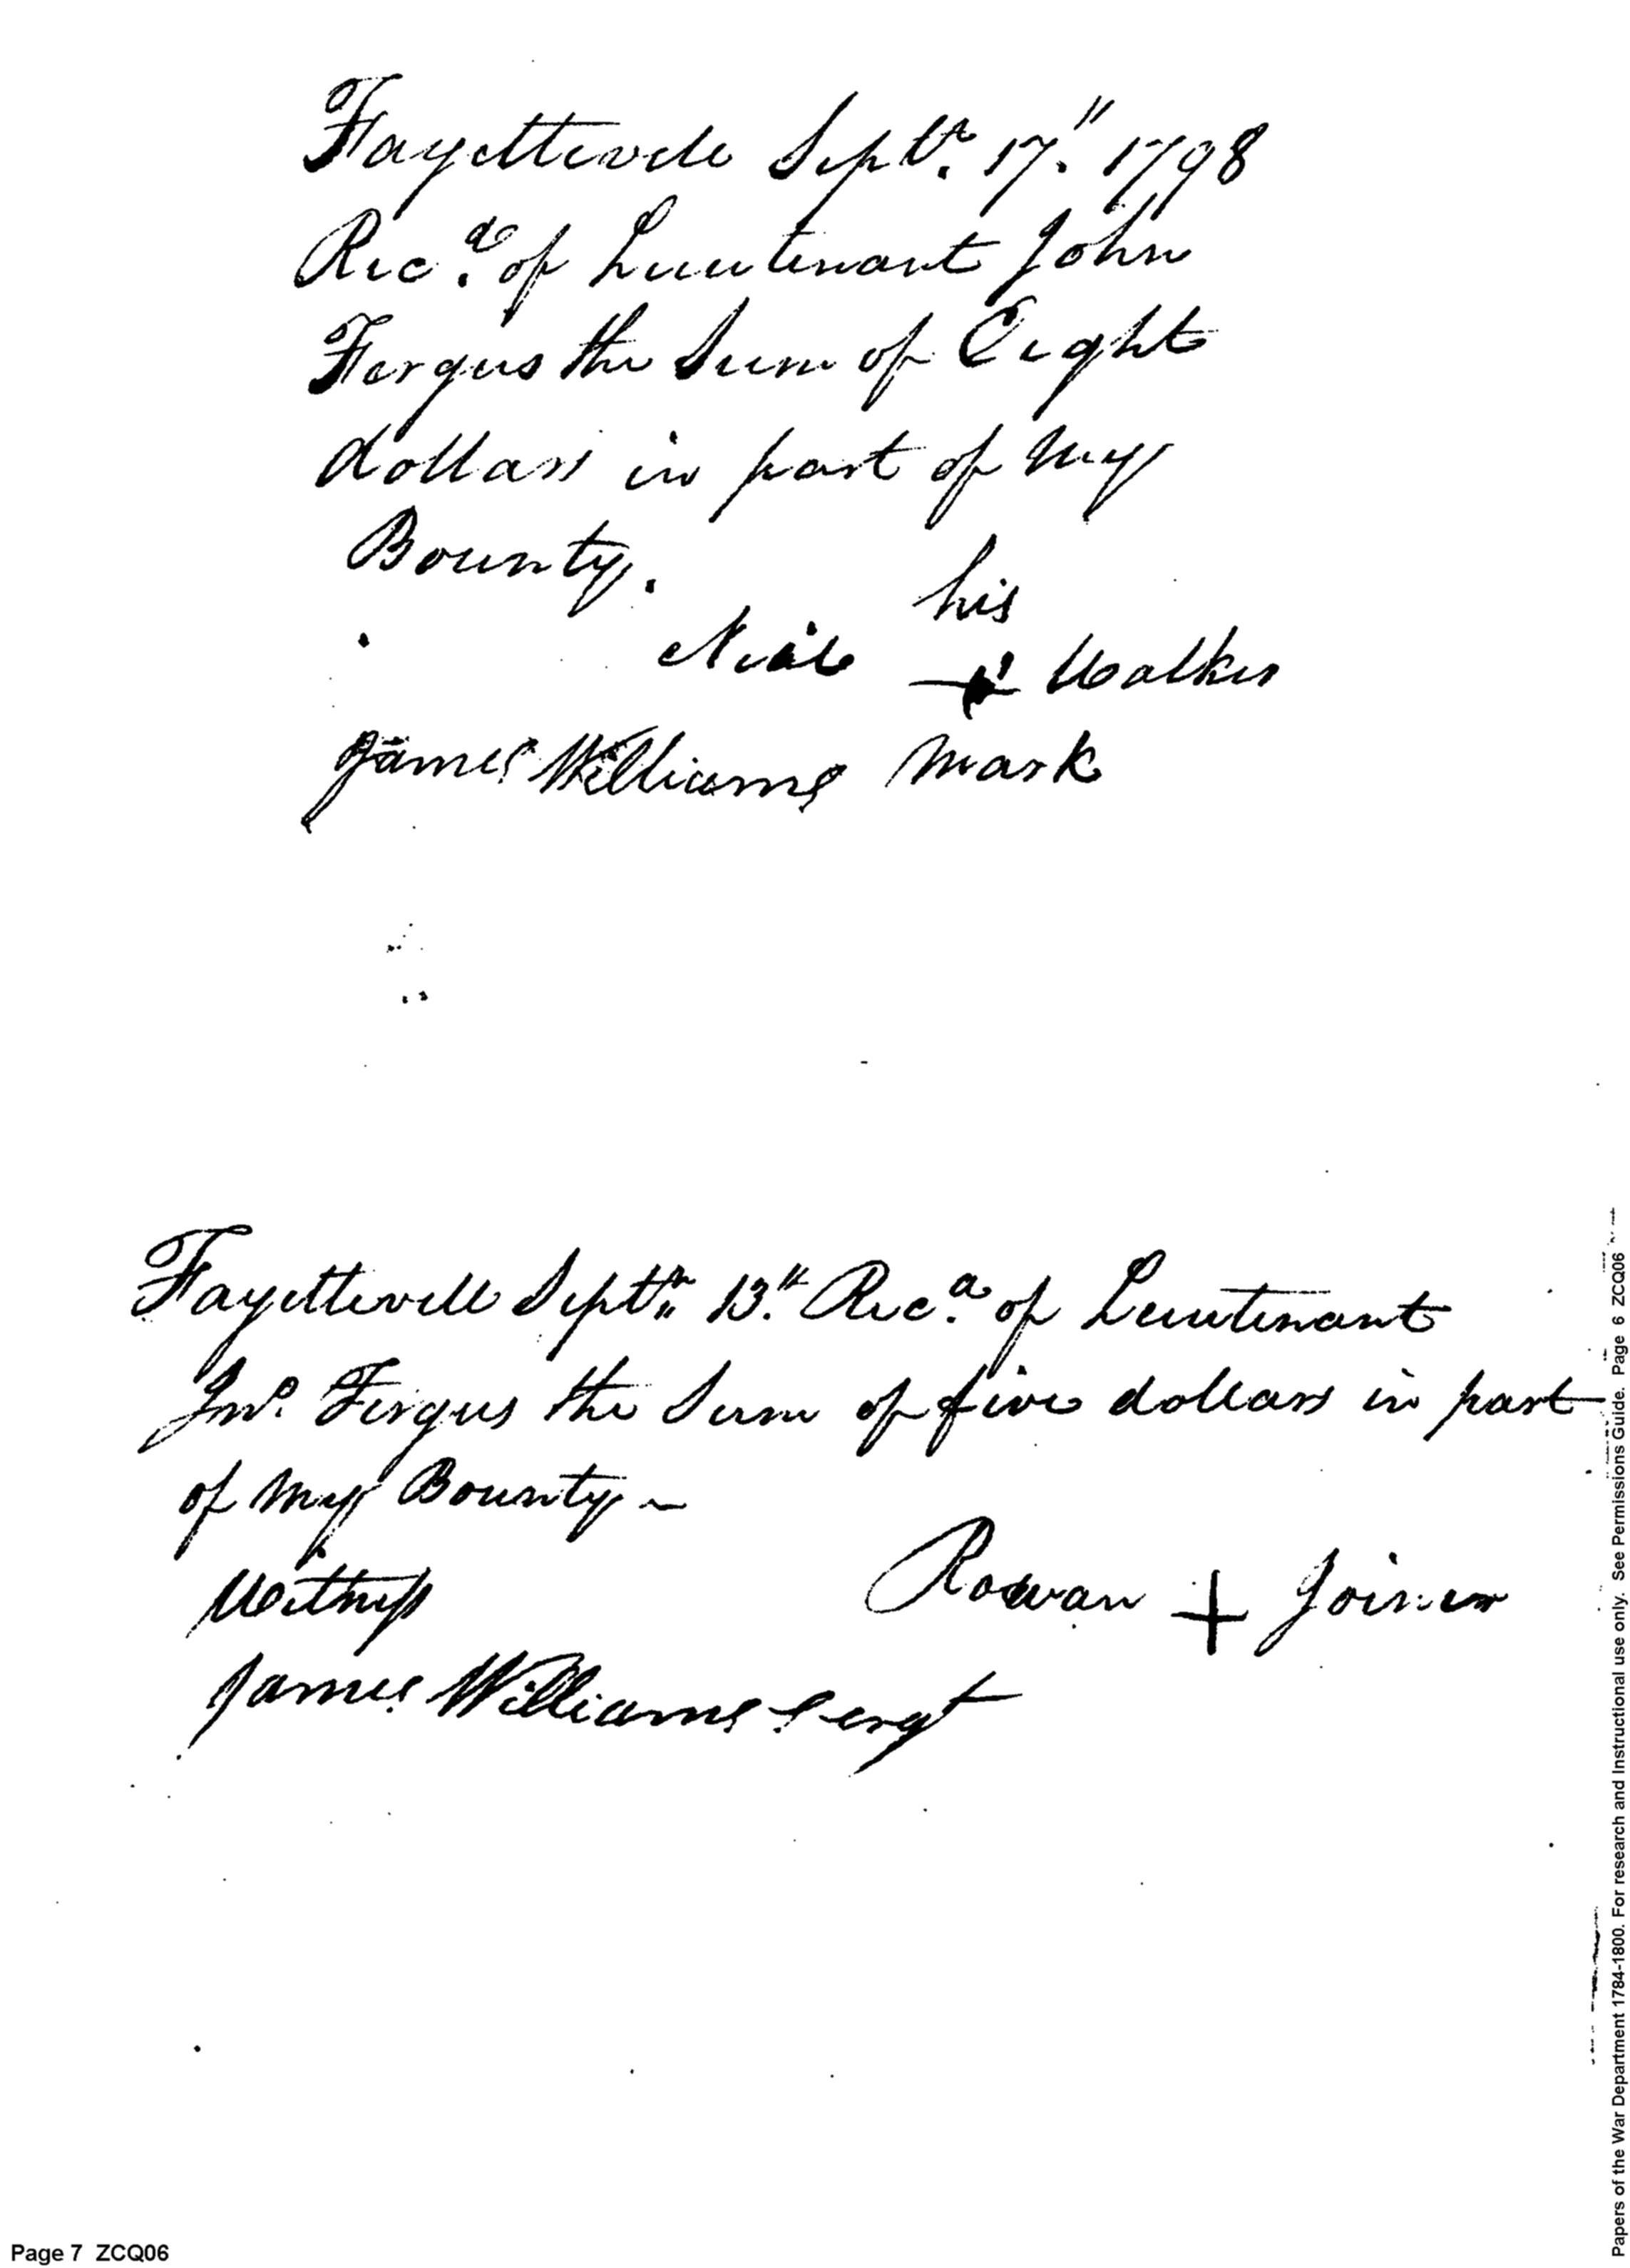 Fayetteville Septr. 17." 1798
Recd. of Lieutenant John
Fergus the Sum of Eight
dollars in part of my
Bounty.
his
Neile + Walker
James Williams mark
Fayetteville Septr. 13.th Recd. of Lieutenant
Jno. Fergus the Sum of five dollars in part
of my Bounty ~
Witness
Rowan + Joiner
James Williams Sergt
Page 7 ZCQ06
Papers of the War Department 1784-1800. For research and Instructional use only. See Permissions Guide. Page 6 ZCQ06